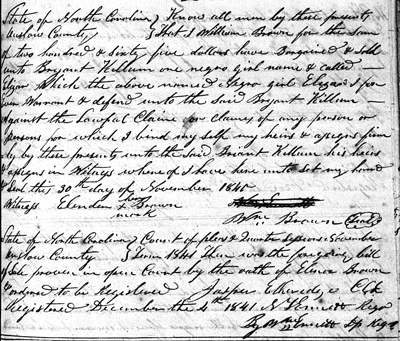 State of North Carolina } Know all men by these presents
Onslow County } That I William Brown for the sum
of two hundred & sixty five dollars have Bargained & Sold
unto Bryant Killum one negro girl name & called
which the above named Negro girl I for
ever Warrant & defend unto the Said Bryant Killum
against the Lawful Claim or claims of any person or
persons for which I bind my self my heirs & assigns
by these presents unto the said Bryant Killum his heirs
& assigns in Witness whereof I have here unto set my hand
& Seal this 30th day of November 1840
Witness Brown
mark
Wm Brown (Seal)
State of North Carolina } Court of pleas & Quarter Sessions November
Onslow County } Term 1841 Then was the foregoing bill
of Sale proven in open Court by the oath of Brown
& ordered to be Registered Jasper Etheridge Clk
Registered December the 4th 1841 N Ennett Regr
By Wm Ennett Dp Regr